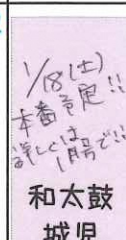 1/18(土)
本番予定!!
詳しくは
1月号で!!
和太鼓
城児